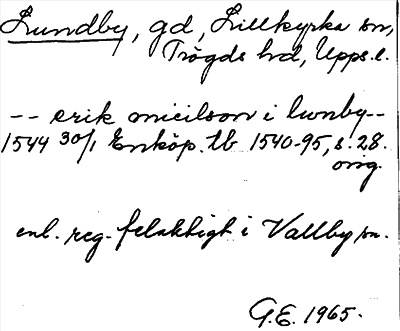 Lundby, gd, Lillkyrka sn,
Trögds hd, Upps. l.
-- erik micilson i lwnby --
1544 30/1 Enköp. tb 1540-95, s. 28.
orig.
enl. reg. felaktigt i Vallby sn.
G.E. 1965.